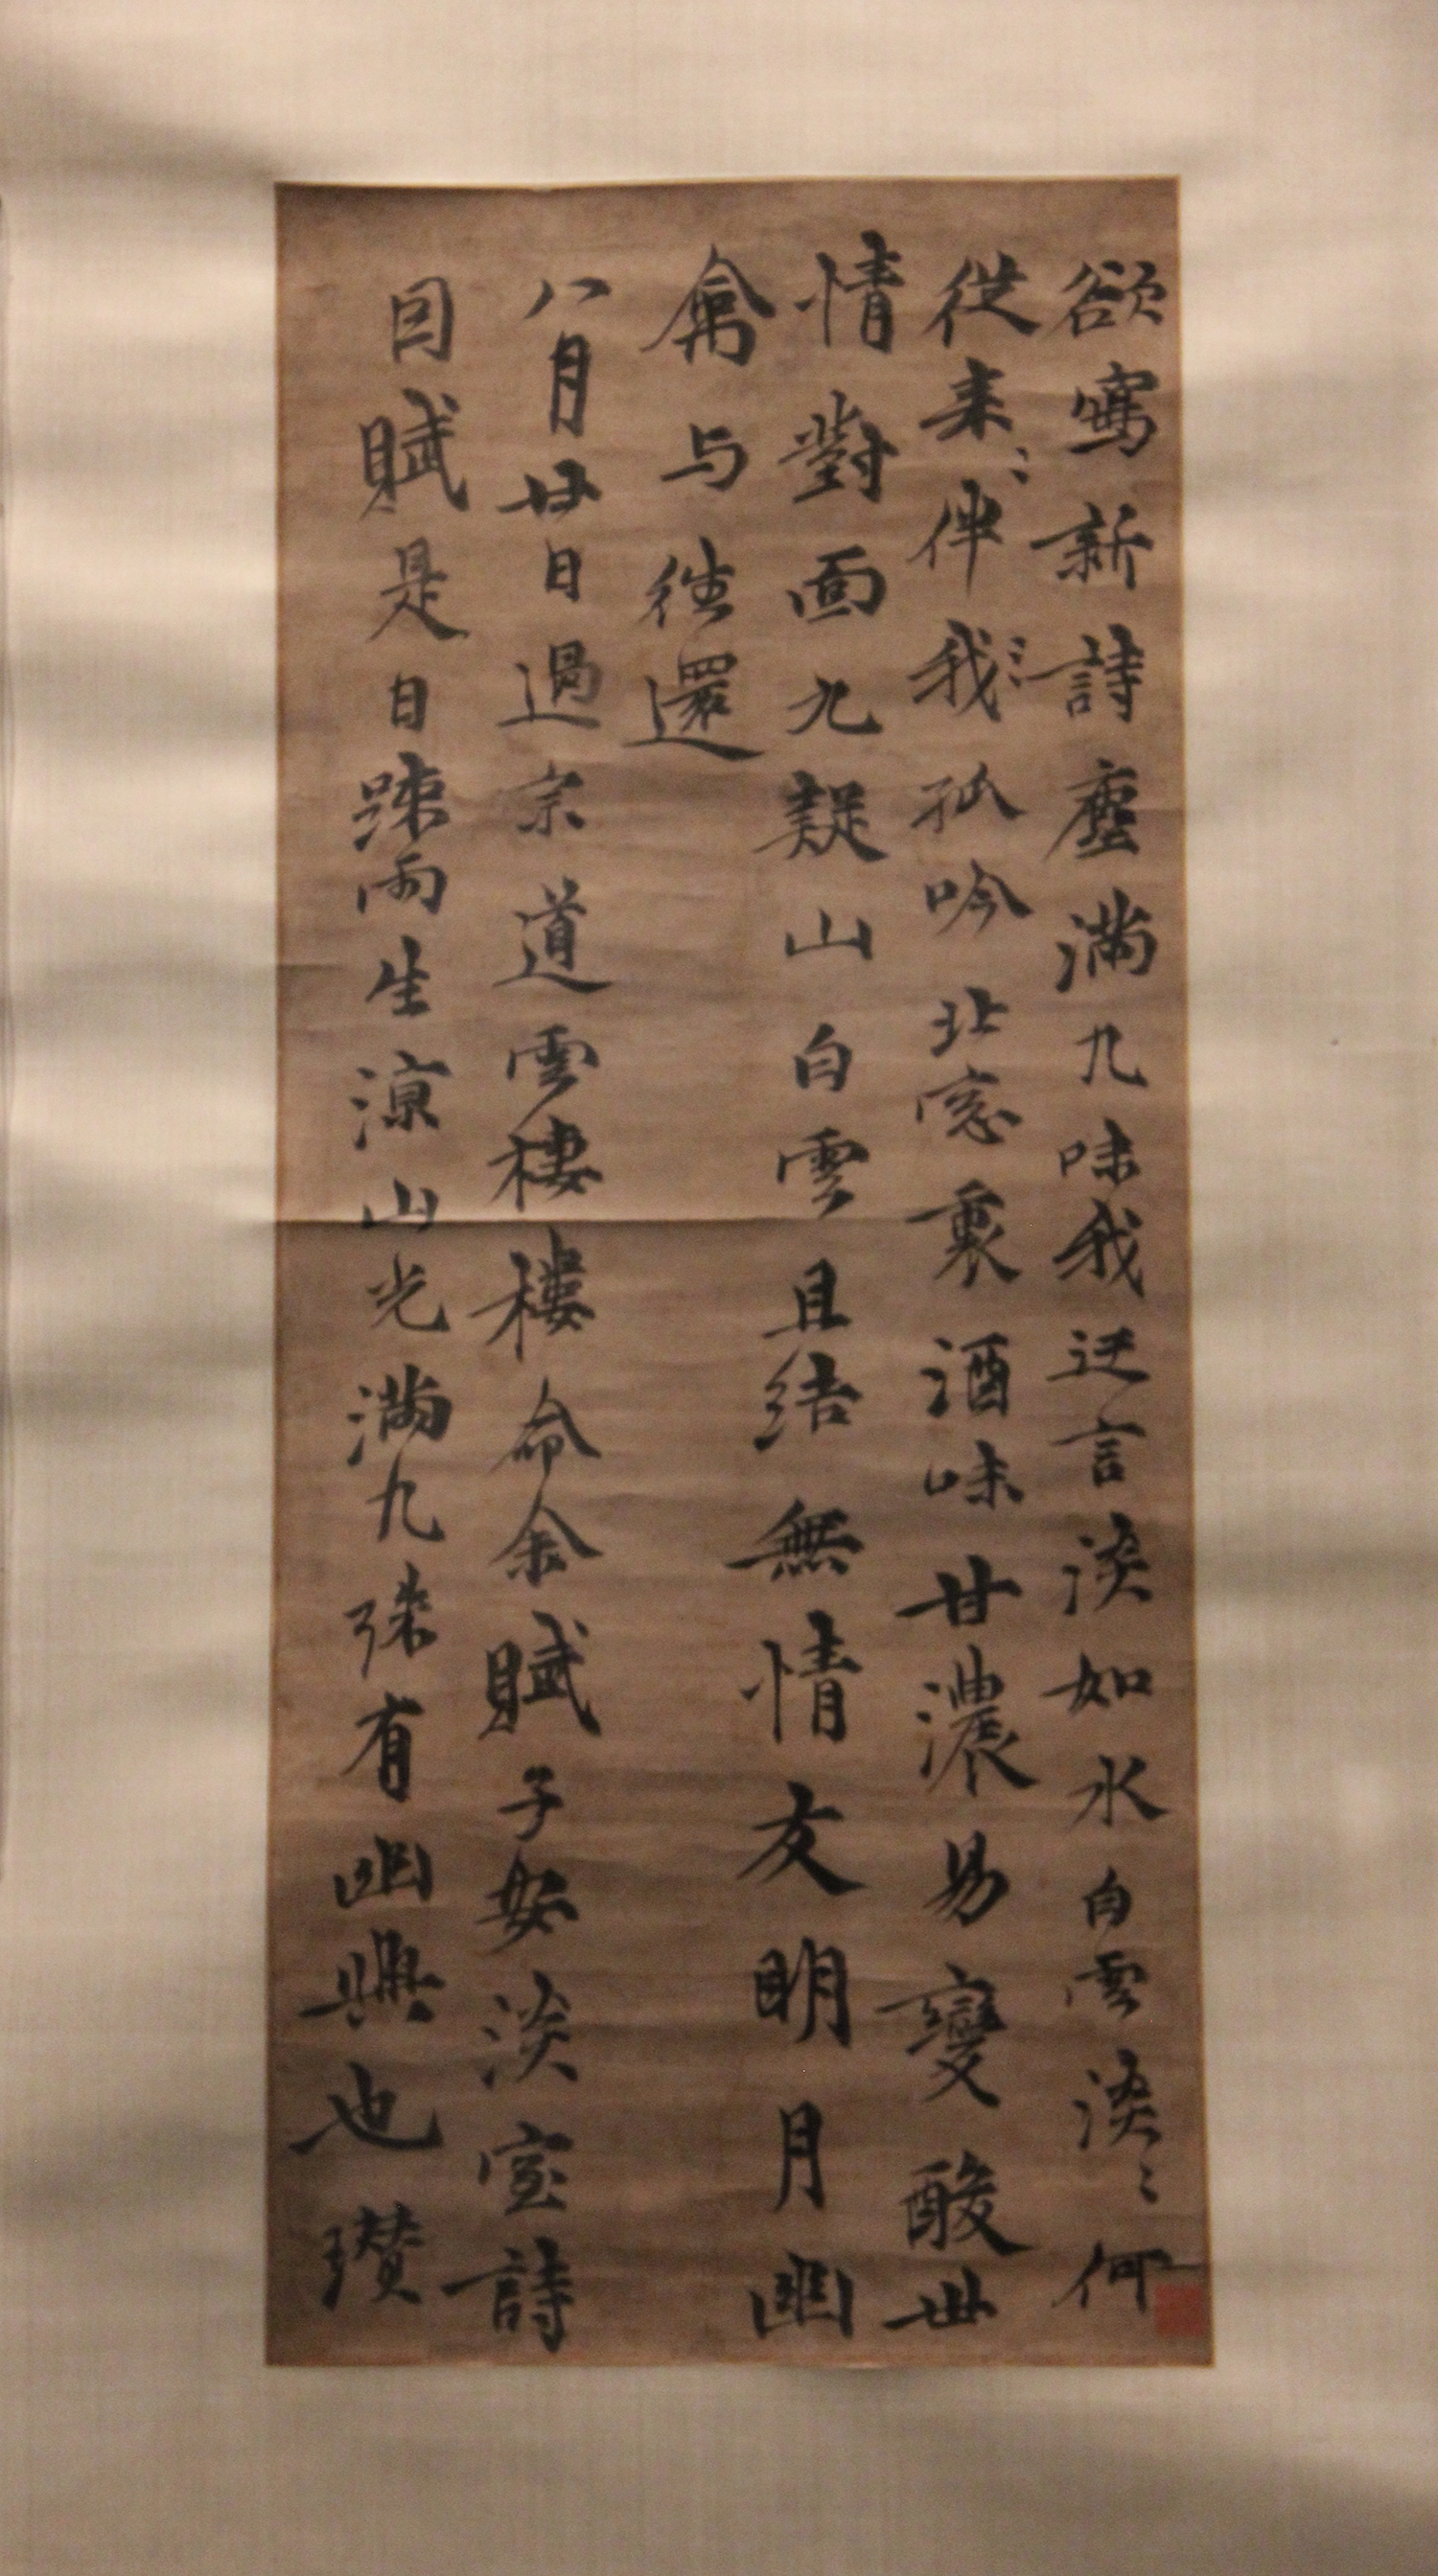 欲寫新詩塵滿几味我迂言淡如水白雲淡〻何
從来〻伴我〻孤吟北窓裏酒味甘濃易變酸世
情對面九疑山白雲且結無情友明月幽
禽与往還
八月廿日過宗道雲樓樓命余賦子安淡室詩
因賦是日踈雨生涼山光滿几殊有幽興也瓚